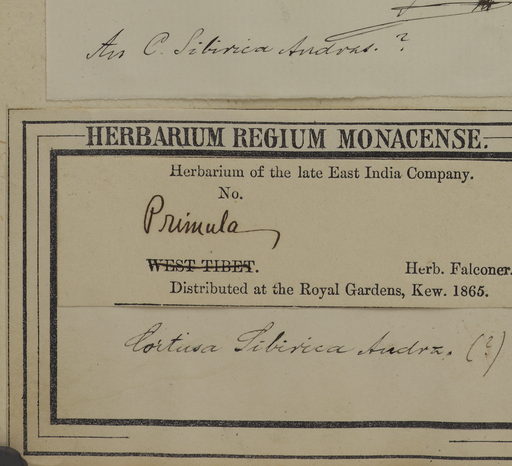 An C. Sibirica Andras. ?
HERBARIUM REGIUM MONACENSE.
Herbarium of the late East India Company.
No.
Primula
WEST TIBET.
Herb. Falconer.
Distributed at the Royal Gardens, Kew. 1865.
Cortusa Sibirica Andrz. (?)